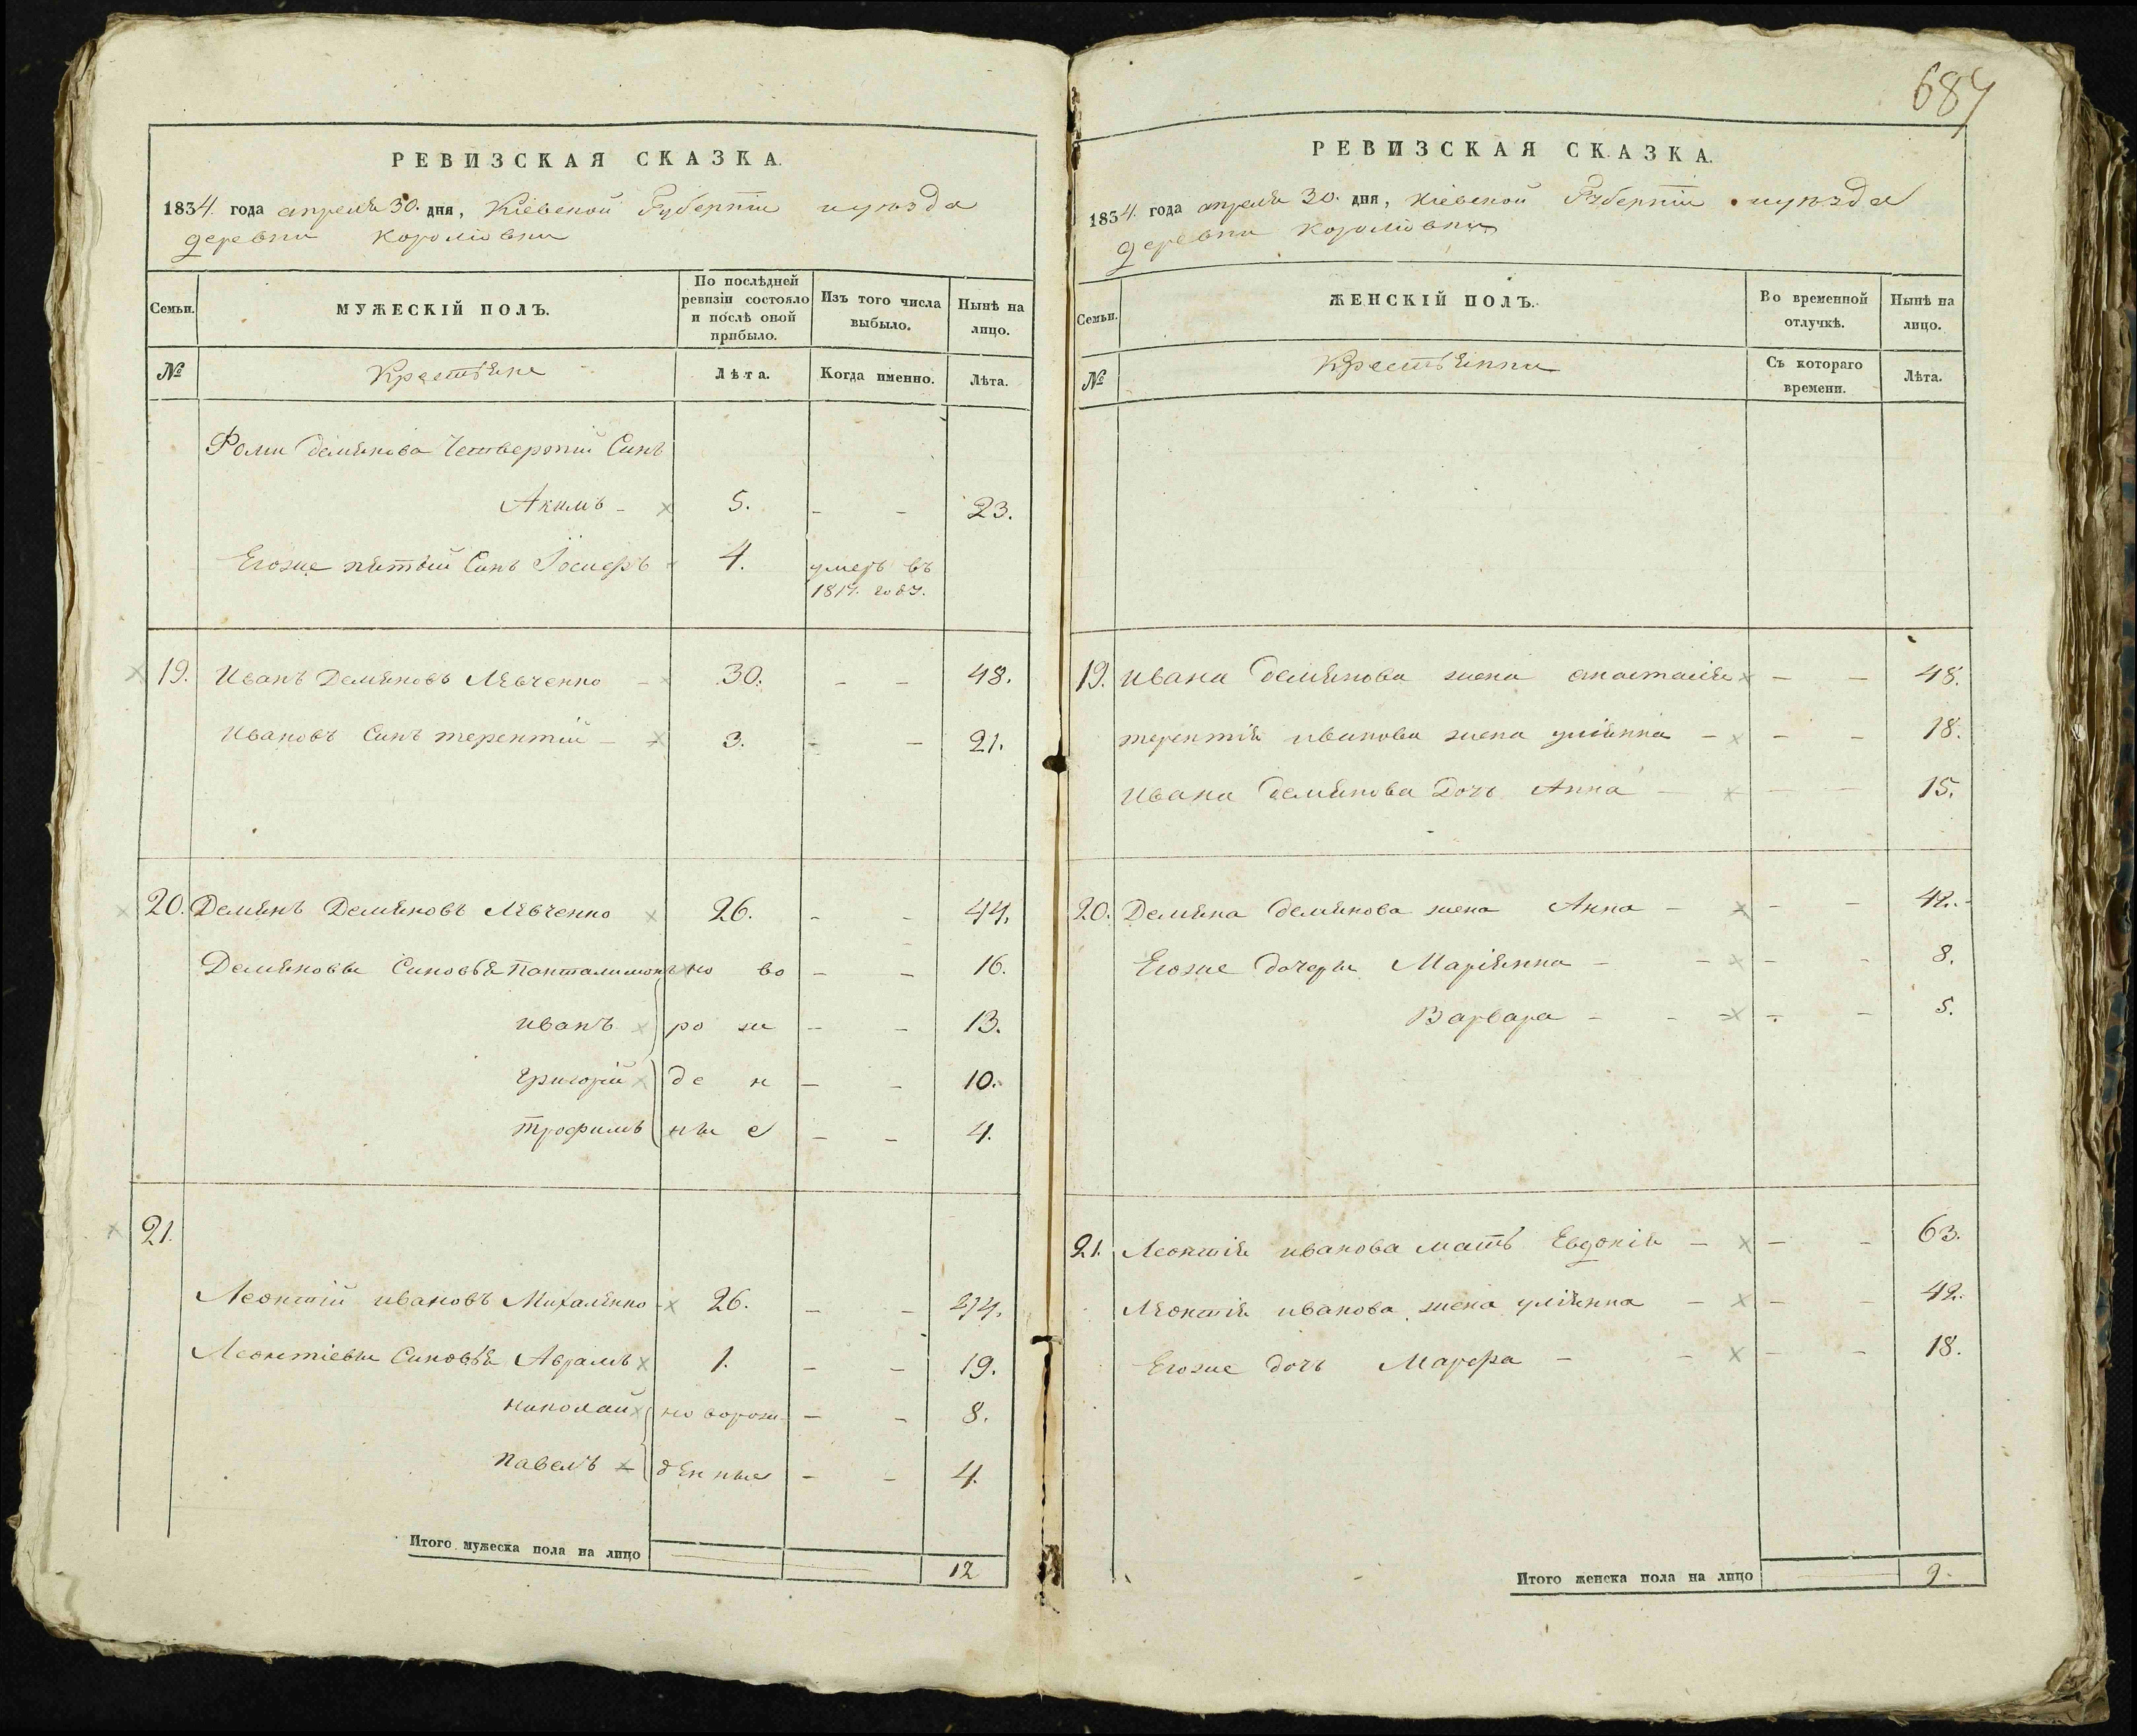 687
РЕВИЗСКАЯ СКАЗКА.
1834. года апреля 30. дня, Кіевской Губерніи и уѣзда
деревни Королювки
Семьи.
МУЖЕСКІЙ ПОЛЪ.
По послѣдней ревизіи состояло и послѣ оной прибыло.
Изъ того числа выбыло.
Нынѣ на лицо.
№
Крестьяне
Лѣта.
Когда именно.
Лѣта.
Фоми Демянова Четвертий Синъ
Акимъ - 5. - - 23.
Егоже пятый Синъ Іосифъ 4. умеръ въ
годѣ.
19. Иванъ Демяновъ Лявченко - 30. - - 48.
Ивановъ Синъ терентій - 3. - - 21.
20. Демянъ Демяновъ Лявченко 26. - - 44.
Демяновы Синовья Панталимонъ но во - - 16.
иванъ ро ж - - 13.
григорій де н - - 10.
трофимъ ны е - - 4.
21.
Леонтій ивановъ Михалянко - 26. - - 44.
Леонтіевы Синовья Аврамъ 1. - - 19.
николай новорож - - 8.
павелъ денные - - 4.
Итого мужеска пола на лицо 12
РЕВИЗСКАЯ СКАЗКА.
1834. года апреля 30. дня, кіевской Губерніи и уѣзда
деревни королювки
Семьи.
ЖЕНСКІЙ ПОЛЪ.
Во временной отлучкѣ.
Нынѣ на лицо.
№
Крестьянки
Съ котораго времени.
Лѣта.
19. Ивана Демянова жена анастасія - - 48.
терентія иванова жена улиянна - - - 18.
Ивана Демянова Дочъ Анна - - - 15.
20. Демяна Демянова жена Анна - - - 42.
Егоже дочери Маріянна - - - - 8.
Варвара - - - - - 5.
21. Леонтія иванова мать Евдокія - - - 63.
Леонтія иванова жена уліянна - - - 42.
Егоже дочъ Марфа - - - - 18.
Итого женска пола на лицо 9.